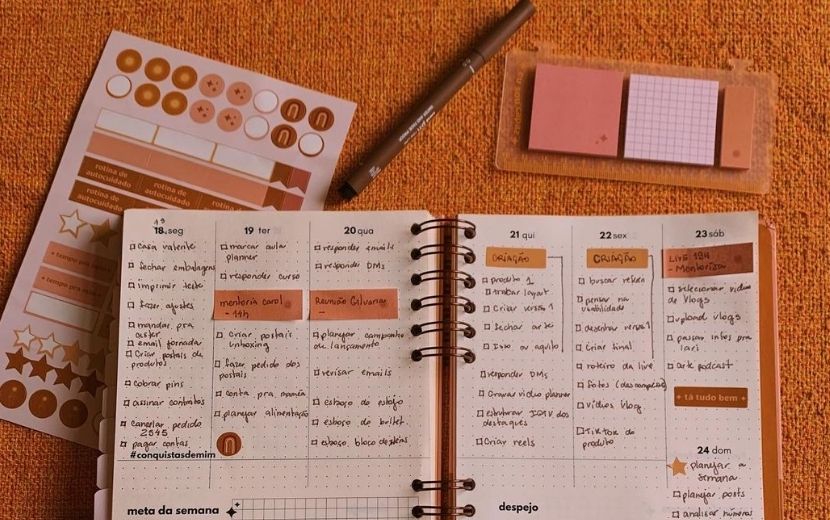 rotina de
autocuidado
rotina de
autocuidado
rotina de
autocuidado
rotina de
+ tempo pra
+ tempo pra
18.seg
casa valente
fechar embalagens
imprimir teste
fazer ajustes
mandar pra
email jornada
Criar postais de
produtos
cobrar pins
assinar contratos
cancelar pedido
2545
pagar contas
#conquistasdemim
19 ter
marcar aula
planner
responder curso
mentoria carol
- 14h
criar postais
unboxing
fazer pedido dos
postais
conta pra mamãe
planejar alimentação
20 qua
responder emails
responder DMs
Reunião Gilvania
planejar campanha
de lançamento
revisar emails
esboço do estojo
esboço do
esboço bloco
21 qui
CRIAÇÃO
produto 1
Criar versão 1
fechar arte
Isso ou aquilo
responder DMs
Gravar vídeo planner
estruturar dos
destaques
Criar reels
22 sex
CRIAÇÃO
buscar
pensar na
usabilidade
versão 1
Criar final
roteiro da live
fotos
vídeos vlog
TikTok do
produto
23 sáb
LIVE 18H
- Mentorizar
selecionar vídeo
de vlogs
upload vlogs
passar infos pra
lari
arte podcast
+ tá tudo bem +
24 dom
planejar a
semana
planejar posts
analisar números
meta da semana
despejo